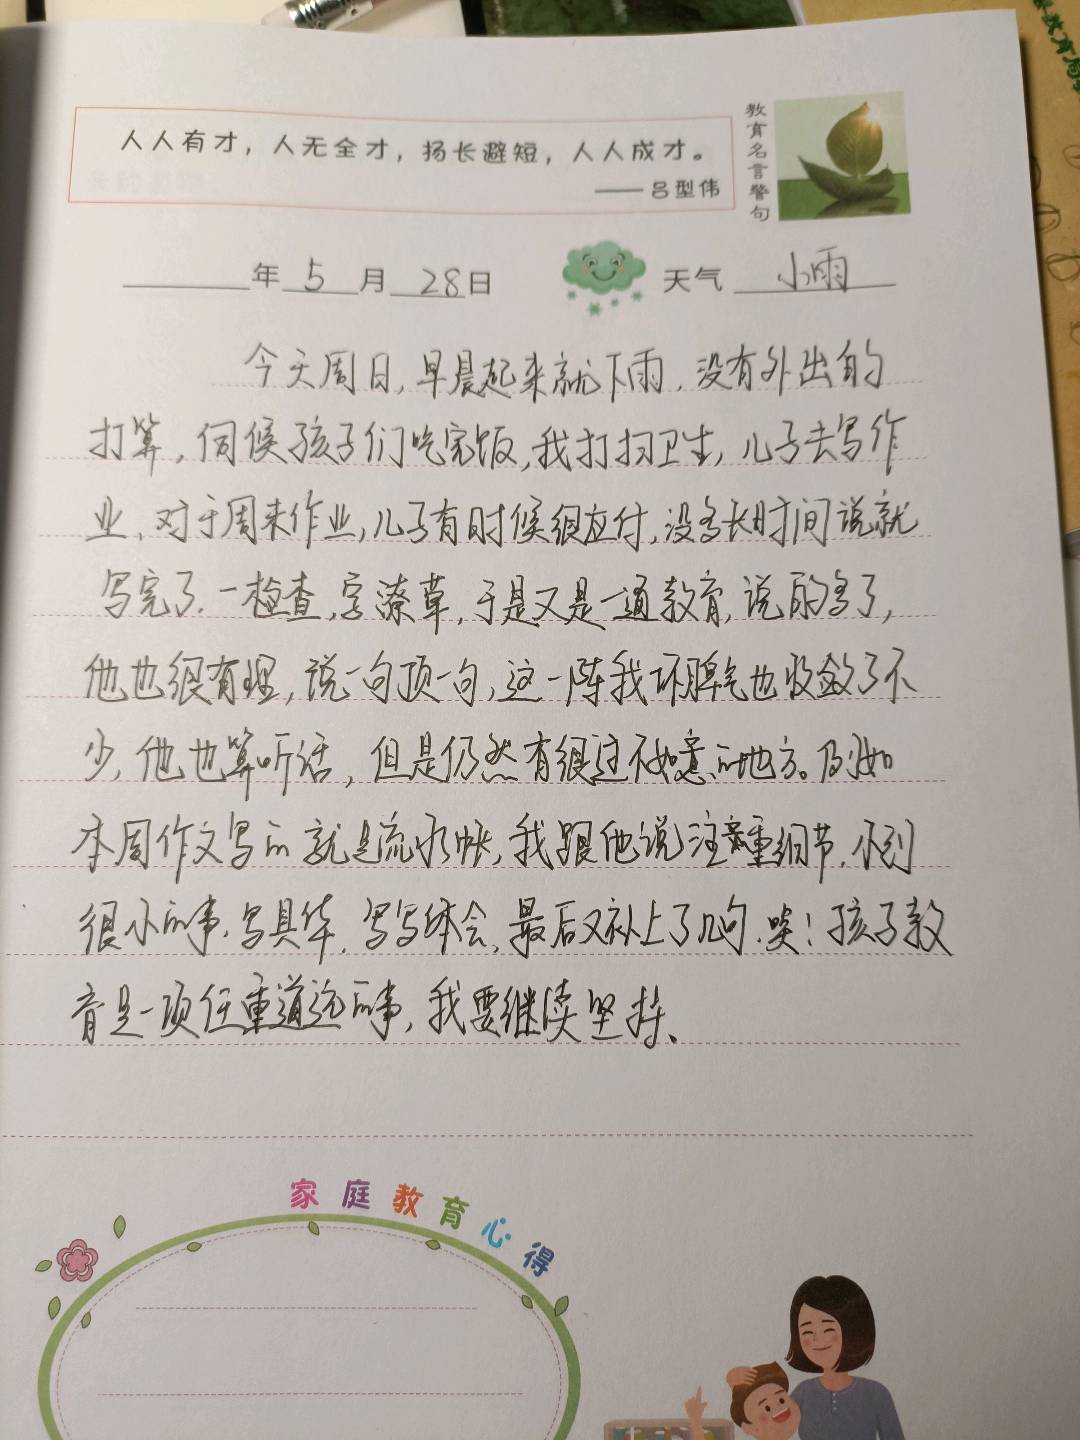 人人有才，人无全才，扬长避短，人人成才。
——吕型伟
教育名言警句
年 5 月 28 日 天气 小雨
今天周日，早晨起来就下雨，没有外出的
打算，伺候孩子们吃完饭，我打扫卫生，儿子去写作
业，对于周末作业，儿子有时候很应付，没多长时间说就
写完了.一检查,字潦草,于是又是一通教育,说的多了,
他也很有理，说一句顶一句，这一阵我坏脾气也收敛了不
少，他也算听话，但是仍然有很过不如意的地方。例如
本周作文写的就是流水帐，我跟他说注意重细节，小到
很小的事,写具体,写写体会,最后又补上了几句.唉！孩子教
育是一项任重道远的事，我要继续坚持、
家庭教育心得